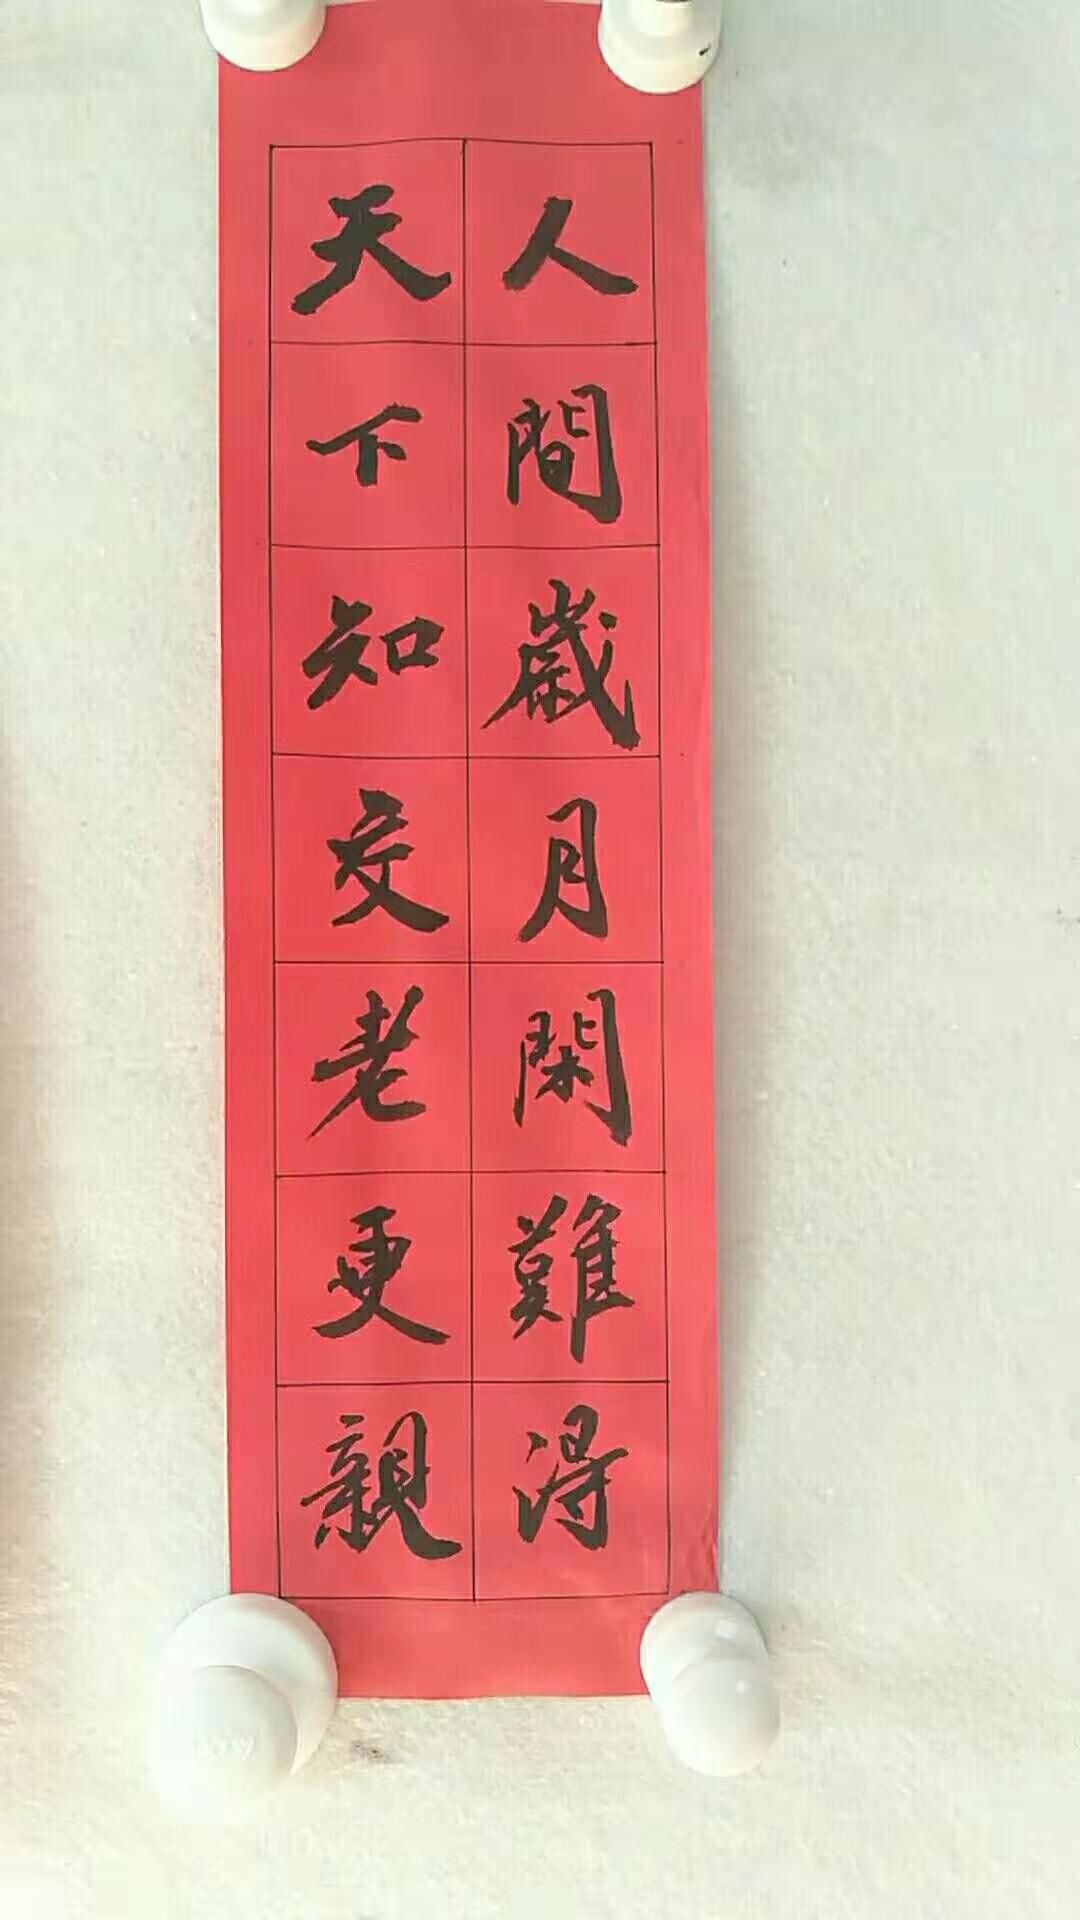 人間歲月閑難得
天下知交老更親